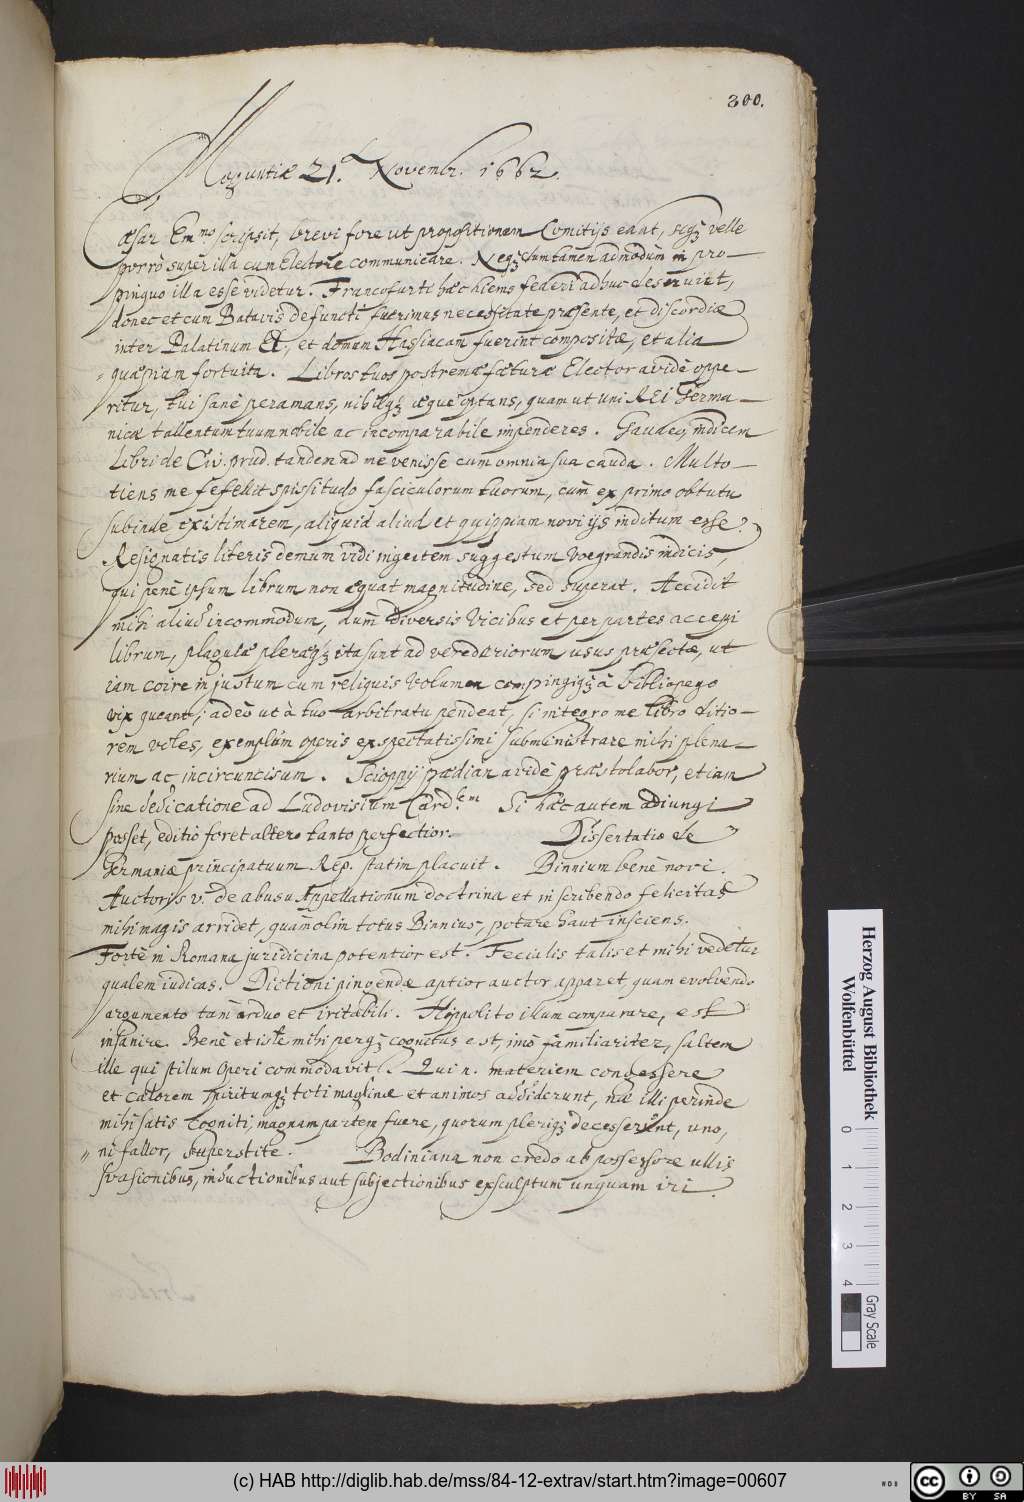 300.
Moguntiæ 21. Novembr. 1662.
Cæsar Em.mo scripsit, brevi fore ut propositionem Comitijs edat, seq; velle
porrò super illa cum Electore communicare. Neq; dum tamen admodùm in pro-
pinquo illa esse videtur. Francofurti hæc hiems fœderi adhuc deserviet,
donec et cum Batavis defuncti fuerimus necessitate præsente, et discordiæ
inter Palatinum El., et domum Hassiacam fuerint compositæ, et alia
quæpiam fortuita. Libros tuos postremæ fæturæ Elector avidè oppe-
ritur, tui sanè peramans, nihilq; æquè optans, quam ut uni REI Germa-
nicæ tallentum tuum nobile ac incomparabile impenderes. Gaudeo, indicem
Libri de Civ. prud. tandem ad me venisse cum omni sua cauda. Multo-
tiens me fefellit spissitudo fasciculorum tuorum, cum ex primo obtutu
subinde existimarem, aliquid aliud et quippiam novi ijs inditum esse.
Resignatis literis demum vidi ingentem suggestum vegrandis indicis,
qui penè ipsum librum non æquat magnitudine, sed superat. Accidit
mihi aliud incommodum, dum diversis vicibus et per partes accepi
librum, plagulæ pleræq; ita sunt ad veredariorum usus præsectæ, ut
iam coire in justum cum reliquis volumen compingiq; à bibliopego
vix queant; adeò ut à tuo arbitratu pendeat, si integro me libro ditio-
rem voles, exemplum operis expectatissimi subministrare mihi plena-
rium ac incircuncisum. Scioppij pædian avidè præstolabor, etiam
sine dedicatione ad Ludovisium Card.lem Si hæc autem adiungi
posset, editio foret altero tanto perfectior. Dissertatio de
Germaniæ principatuum Rep. statim placuit. Binnium benè novi.
Auctoris v. de abusu Appellationum doctrina et in scribendo felicitas
mihi magis arridet, quàm olim totus Binnius, potare haut insciens.
Fortè in Romana juridicina potentior est. Fecialis talis et mihi vedetur
qualem iudicas. Dictioni pingendæ aptior auctor apparet, quam evolvendo
argumento tam arduo et iritabili. Hippolito illum comparare, est
insanire. Benè et iste mihi perq; cognitus est, imò familiariter, saltem
ille qui stilum operi commodavit. Qui n. materiem congessere
et calorem spiritumq; toti machinæ et animos addiderunt, nec illi perinde
mihi satis cogniti, magnam partem fuere, quorum pleriq; decesserunt, uno,
ni fallor, superstite. Bodiniana non credo ab possessore ullis
svasionibus, inductionibus aut subjectionibus exsculptum unquam iri.
Herzog August Bibliothek
Wolfenbüttel
0 1 2 3 4
Gray Scale
(c) HAB http://diglib.hab.de/mss/84-12-extrav/start.htm?image=00607
cc BY SA